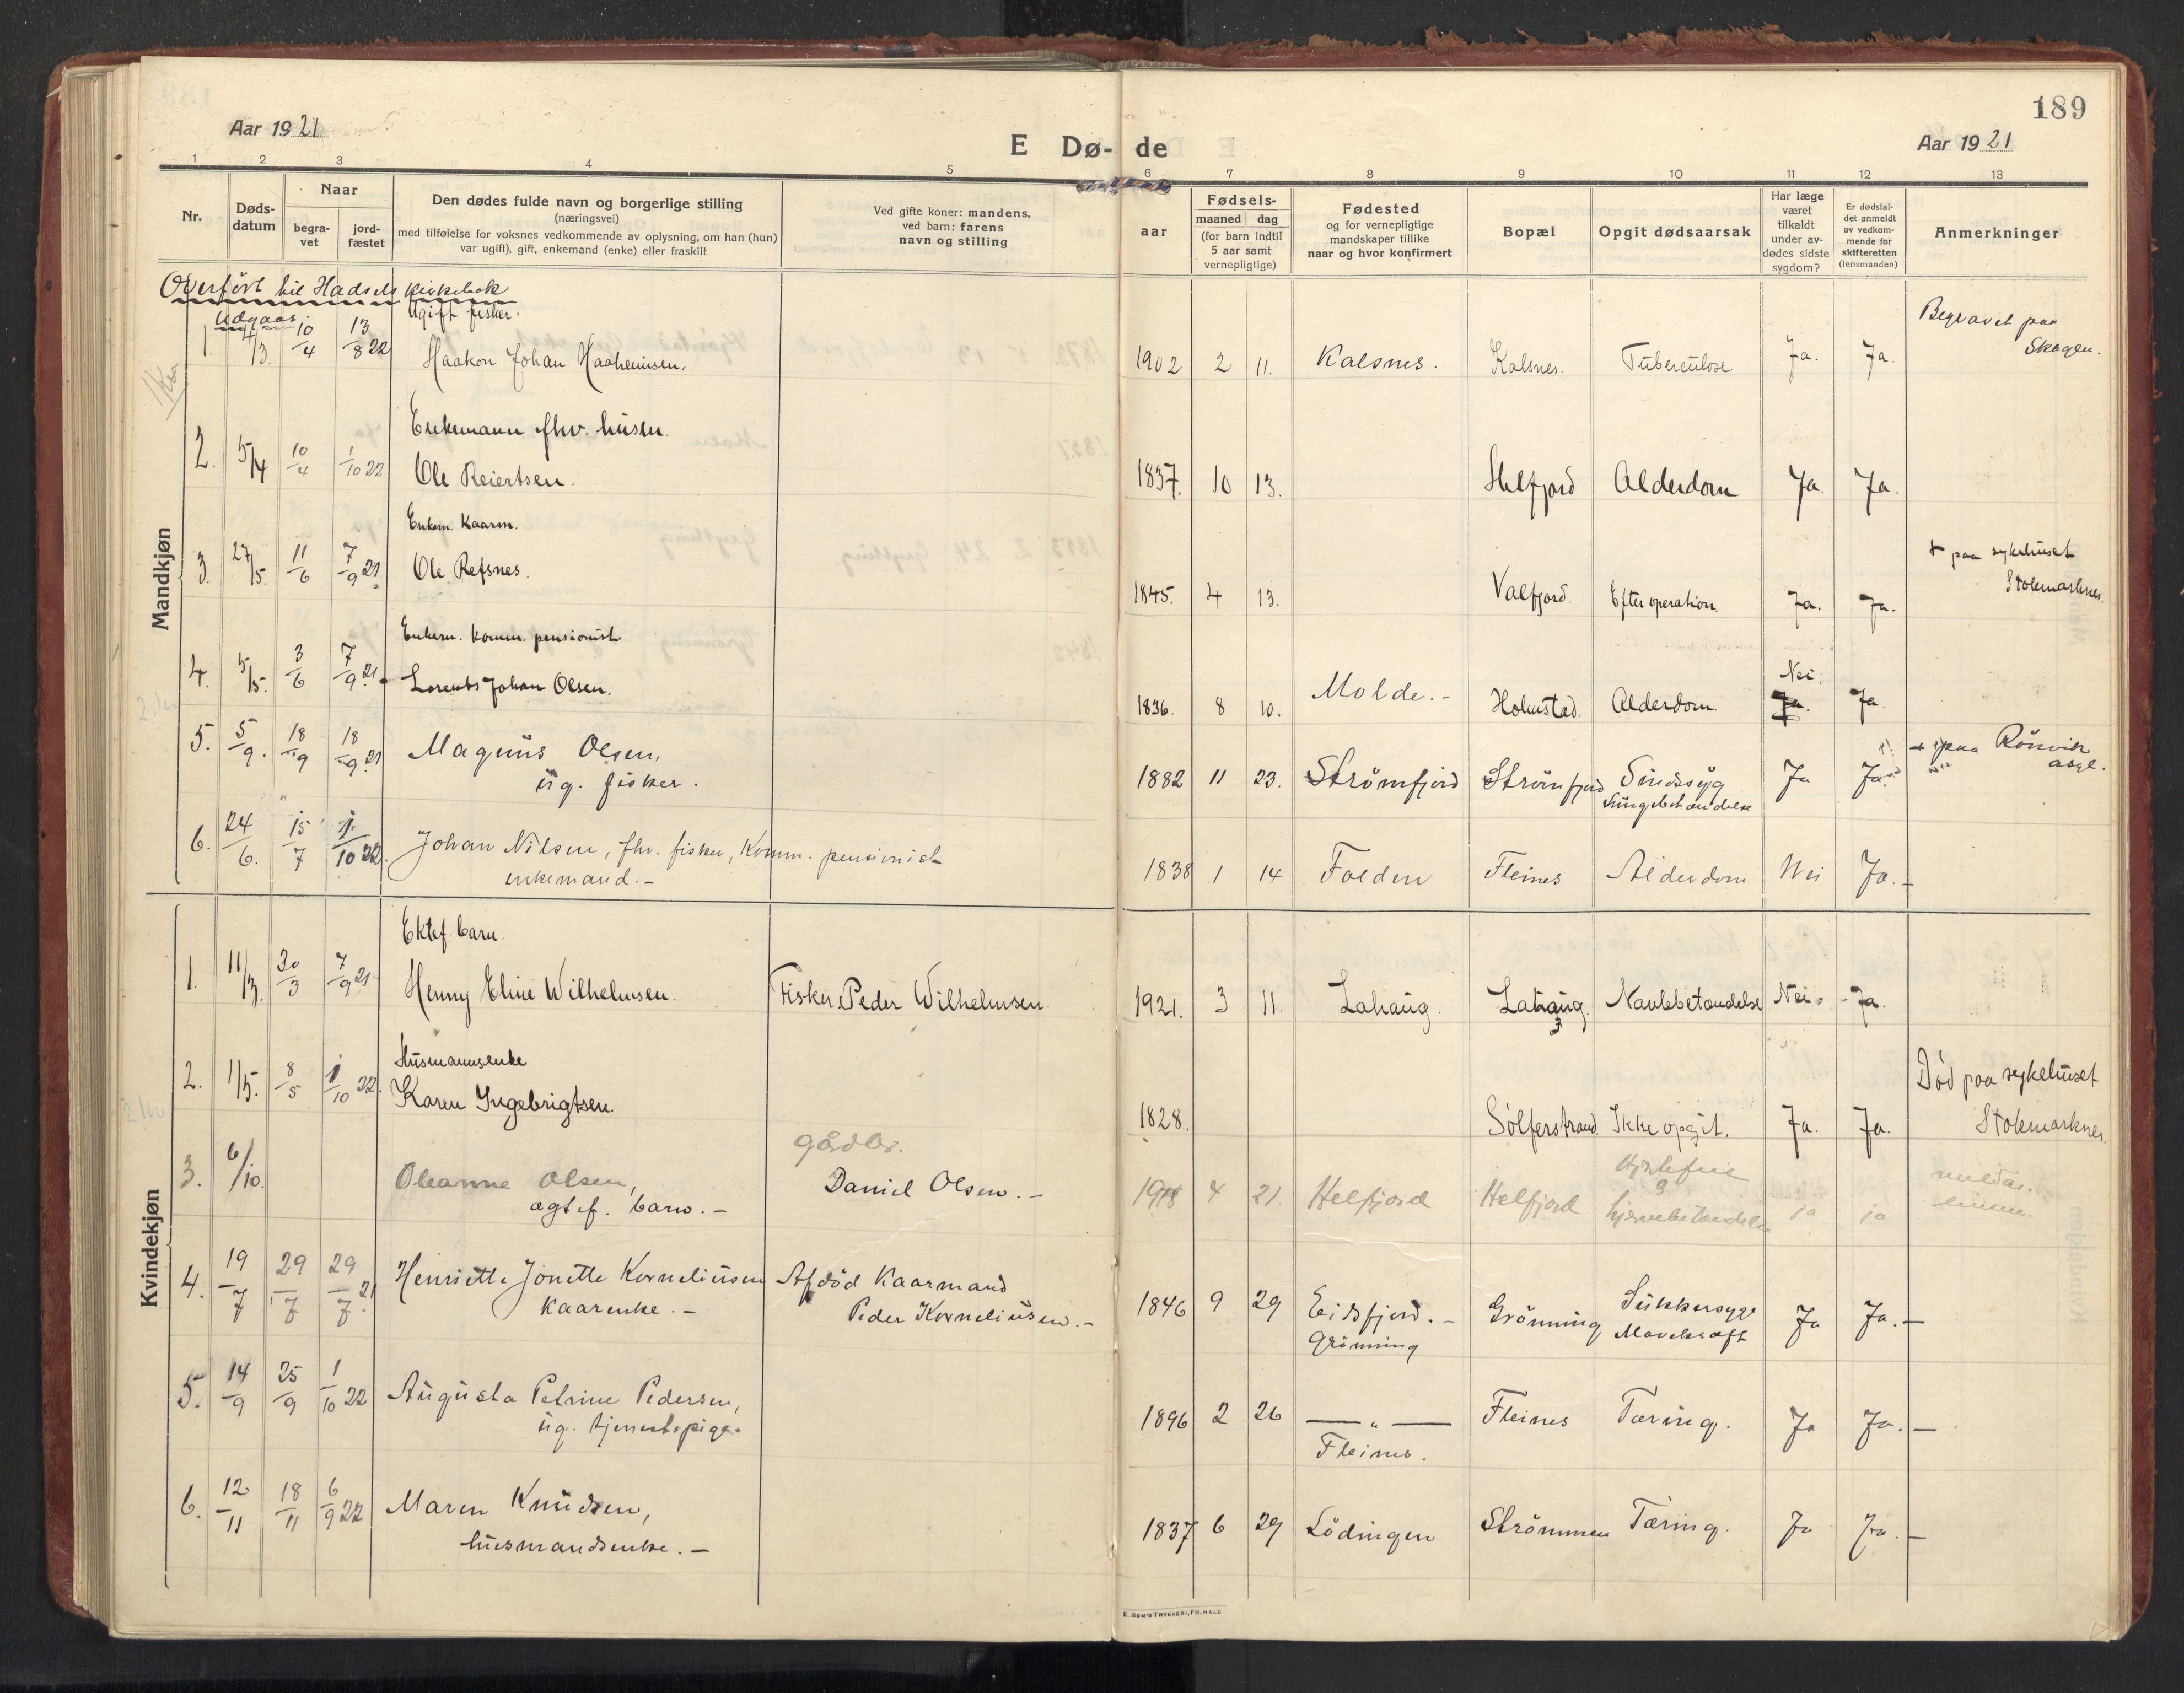 189
Aar 1921
E Dø- de
Aar 1921
1 2 3 4 5 6 7 8 9 10 11 12 13
Nr.
Døds-
datum
Naar
begra-
vet
jord-
fæstet
Den dødes fulde navn og borgerlige stilling
(næringsvei)
med tilføielse for voksnes vedkommende av oplysning, om han (hun)
var ugift), gift, enkemand (enke) eller fraskilt
Ved gifte koner: mandens,
ved barn: farens
navn og stilling
aar
Fødsels-
maaned dag
(for barn indtil
5 aar samt
vernepligtige)
Fødested
og for vernepligtige
mandskaper tillike
naar og hvor konfirmert
Bopæl
Opgit dødsaarsak
Har læge
været
tilkaldt
under av-
dødes sidste
sygdom?
Er dødsfal-
det anmeldt
av vedkom-
mende for
skifteretten
(lensmanden)
Anmerkninger
Overført til Hadsels kirkebok
Udgaar
Mandkjøn
Ugift fisker.
1. 4/3. 10/4 13/8 22 Haakon Johan Haakensen. 1902 2 11. Kalsnes. Kalsnes. Tuberculose Ja. Ja. Begravet paa
Skagen.
Enkemann fhv. husm.
2. 5/4 10/4 1/10 22 Ole Reiertsen. 1837. 10 13. Helfjord Alderdom Ja. Ja.
Enkem. Kaarm.
3. 27/5. 11/6 7/9 21 Ole Refsnes. 1845. 4 13. Valfjord. Efter operation. Ja. Ja. + paa sykehuset
Stokmarknes.
Enkem. komm. pensionist.
4. 5/5. 3/6 7/9 21 Lorents Johan Olsen. 1836. 8 10. Molde.- Holmstad. Alderdom. Nei. Ja. Ja.
5. 5/9. 18/9 18/9 21 Magnus Olsen,
ug. fisker. 1882 11 23. Strømfjord Strømfjord Sindssyg
Lungebetændelse Ja Ja. + paa Rönvik
asyl.
6. 24/6. 15/7 1/10 22. Johan Nilsen, fhv. fisker, Komm. pensionist
enkemand.- 1838 1 14 Folden Fleines Alderdom Nei Ja.-
Kvindekjøn
Ektef. barn.
1. 11/3. 20/3 7/9 21 Henny Eline Wilhelmsen. Fisker Peder Wilhelmsen. 1921. 3 11. Lahaug. Lahaug. Navlebetændelse Nei. Ja.
Husmannsenke
2. 1/5. 8/5 1/10 22. Karen Ingebrigtsen. 1828. Sölferstrand. Ikke opgit. Ja. Ja. Död paa sykehuset
Stokmarknes.
3. 6/10. Oleanne Olsen,
ægtef. barn.- gårdbr.
Daniel Olsen.- 1918 4 21. Helfjord Helfjord hjernebetændelse ja ja
4. 19/7 29/7 29/7 21. Henriette Jonette Korneliussen
Kaarenke.- Afdød Kaarmand
Peder Korneliussen.- 1846 9 29 Eidsfjord.-
Grönning Grönning Sukkersyge
Mavekræft Ja Ja.-
5. 14/9 25/9 1/10 22 Augusta Petrine Pedersen,
ug. tjenestepige. 1896 2 26 — " —
Fleines. Fleines Tæring. Ja Ja.-
6. 12/11 18/11 6/9 22 Maren Knudsen,
husmandsenke.- 1837 6 29 Lödingen Strömmen Tæring. Ja Ja.-
E. SEM'S TRYKKERI, FR.HALD